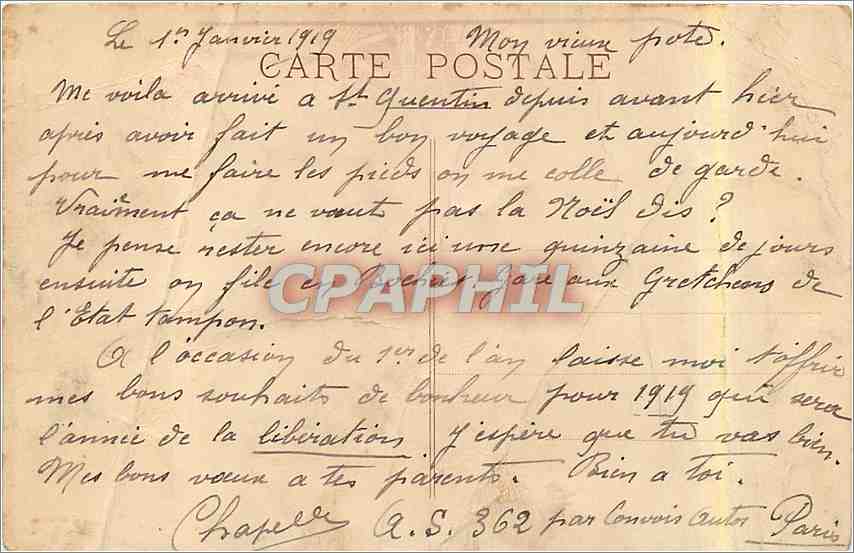 Le 1er Janvier 1919 Mon vieux pote.
CARTE POSTALE
Me voila arrivé a St Quentin depuis avant hier
après avoir fait un bon voyage et aujourd'hui
pour me faire les pieds on me colle de garde.
Vraiment ça ne vaut pas la Noël dis?
Je pense rester encore ici une quinzaine de jours
ensuite on file en Gare aux Gretchens de
CPAPHIL
l'Etat tampon.
A l'occasion du 1er de l'an laisse moi t'offrir
mes bons souhaits de bonheur pour 1919 qui sera
l'année de la libération J'espère que tu vas bien.
Mes bons vœux a tes parents. Bien a toi.
Chapelle A.S. 362 par Convois Autos Paris